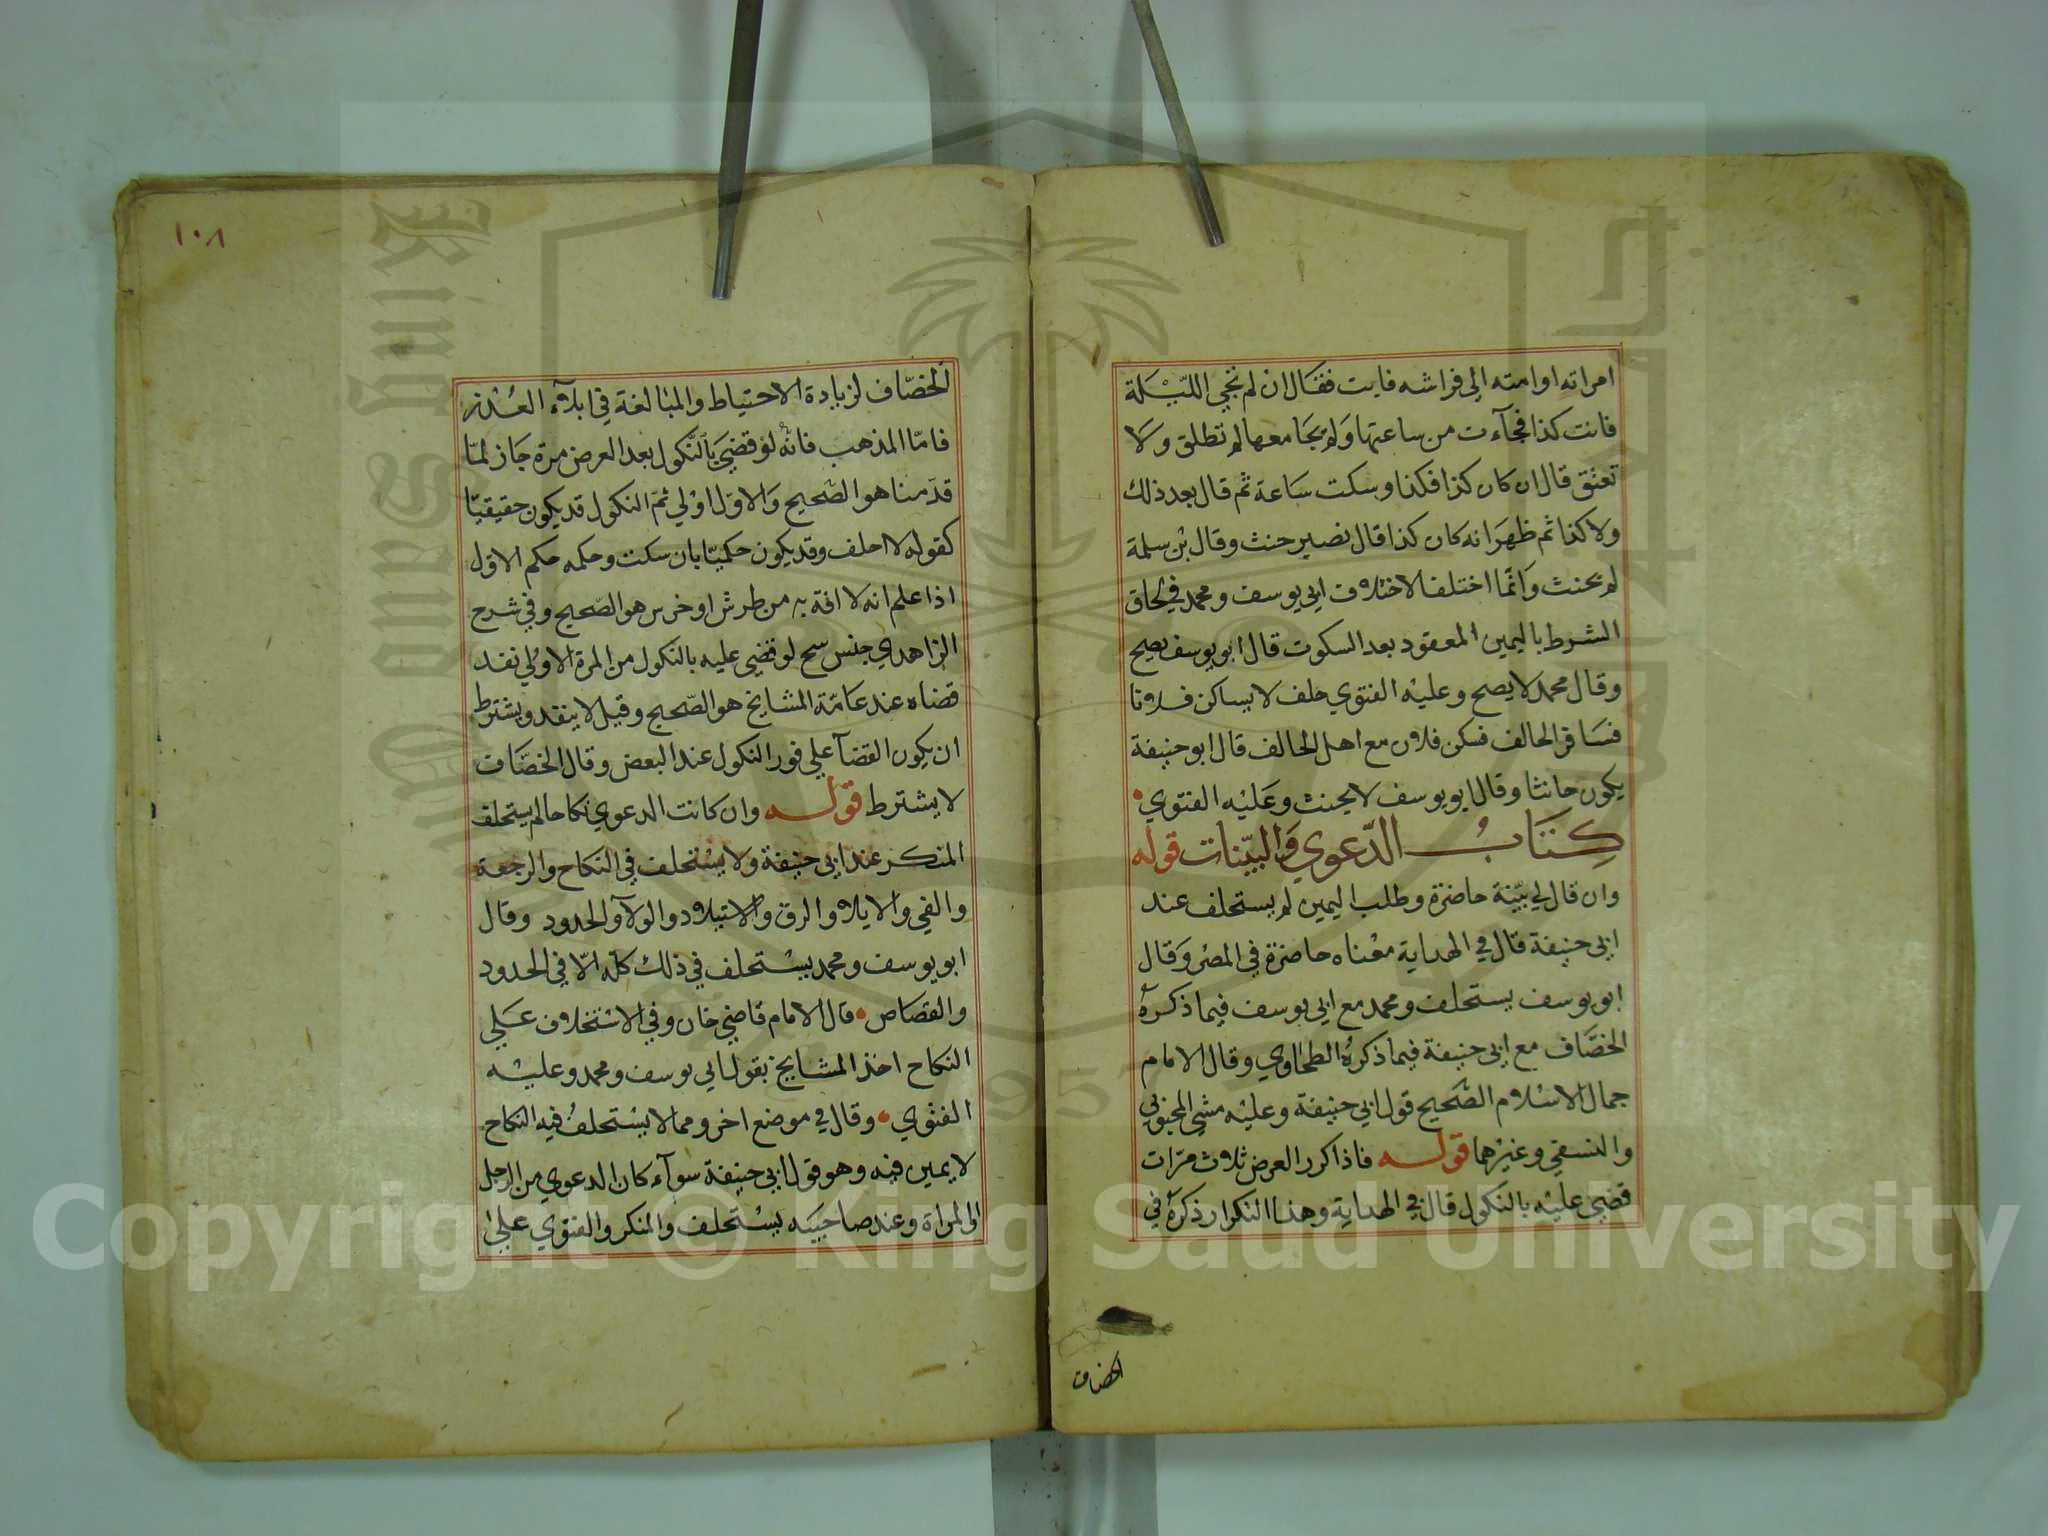 امراته او امته الى فراشه فابت فقال ان لم تجي الليلة
فانت كذا فجآءت من ساعتها ولم يجامعها لم تطلق ولا
تعتق قال ان كان كذا فكذا وسكت ساعة ثم قال بعد ذلك
ولا كذا ثم ظهر انه كان كذا قال نصير حنث وقال بن سلمة
لم يحنث وانما اختلفا لاختلاف ابي يوسف ومحمد في لحاق
الشرط باليمين المعقود بعد السكوت قال ابو يوسف يصح
وقال محمد لا يصح وعليه الفتوي حلف لا يساكن فلانا
فسافر الحالف فسكن فلان مع اهل الحالف قال ابو حنيفة
يكون حانثا وقال ابو يوسف لا يحنث وعليه الفتوي
كتاب الدعوي والبينات قوله
وان قال لي بينة حاضرة وطلب اليمين لم يستحلف عند
ابي حنيفة قال في الهداية معناه حاضرة في المصر وقال
ابو يوسف يستحلف ومحمد مع ابي يوسف فيما ذكره
الخصاف مع ابي حنيفة فيما ذكره الطحاوي وقال الامام
جمال الاسلام الصحيح قول ابي حنيفة وعليه مشي المحبوبي
والنسفي وغيرهما قوله فاذا كرر العرض ثلاث مرات
قضي عليه بالنكول قال في الهداية وهذا التكرار ذكره في
الخصاف
١٠٨
الخصاف لزيادة الاحتياط والمبالغة في ابلآء العذر
فاما المذهب فانه لو قضي بالنكول بعد العرض مرة جاز لما
قدمنا هو الصحيح والاول اولي ثم النكول قد يكون حقيقيا
كقوله لا احلف وقد يكون حكميا بان سكت وحكمه حكم الاول
اذا علم انه لا افة به من طرش او خرس هو الصحيح وفي شرح
الزاهدي جنس سح لو قضي عليه بالنكول من المرة الاولي نفذ
قضاه عند عامة المشايخ هو الصحيح وقيل لا ينفذ ويشترط
ان يكون القضآ علي فور النكول عند البعض وقال الخصاف
لا يشترط قوله وان كانت الدعوي نكاحا لم يستحلف
المنكر عند ابي حنيفة ولا يستحلف في النكاح والرجعة
والفي والايلاء والرق والاستيلاد والولآء والحدود وقال
ابو يوسف ومحمد يستحلف في ذلك كله الا في الحدود
والقصاص قال الامام قاضي خان وفي الاستحلاف علي
النكاح اخذ المشايخ بقول ابي يوسف ومحمد وعليه
الفتوي وقال في موضع اخر ومما لا يستحلف فيه النكاح
لا يمين فيه وهو قول ابي حنيفة سوآء كان الدعوي من الرجل
او المراة وعند صاحبيه يستحلف والمنكر والفتوي علي
Copyright © King Saud University
King Saud University
1957